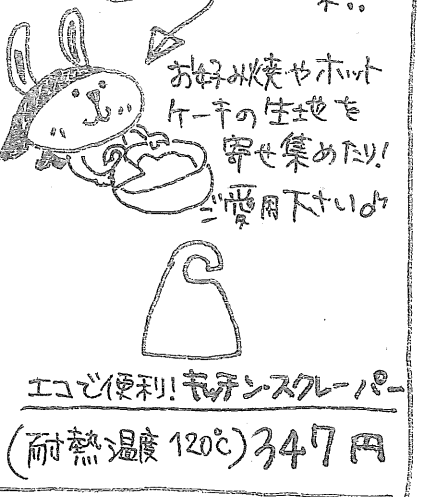 お好み焼やホット
ケーキの生地を
寄せ集めたり!
ご愛用下さい♪
エコで便利!キッチン・スクレーパー
(耐熱温度 120℃) 347円